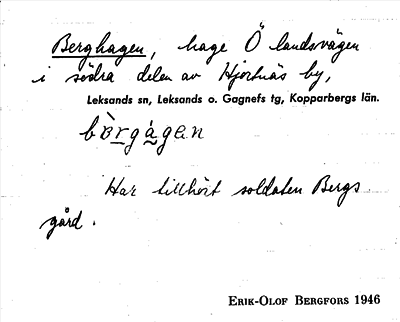 Berghagen, hage Ö landsvägen
i södra delen av Hjortnäs by,
Leksands sn, Leksands o. Gagnefs tg, Kopparbergs län.
bòrgàgen
Har tillhört soldaten Bergs
gård.
ERIK-OLOF BERGFORS 1946